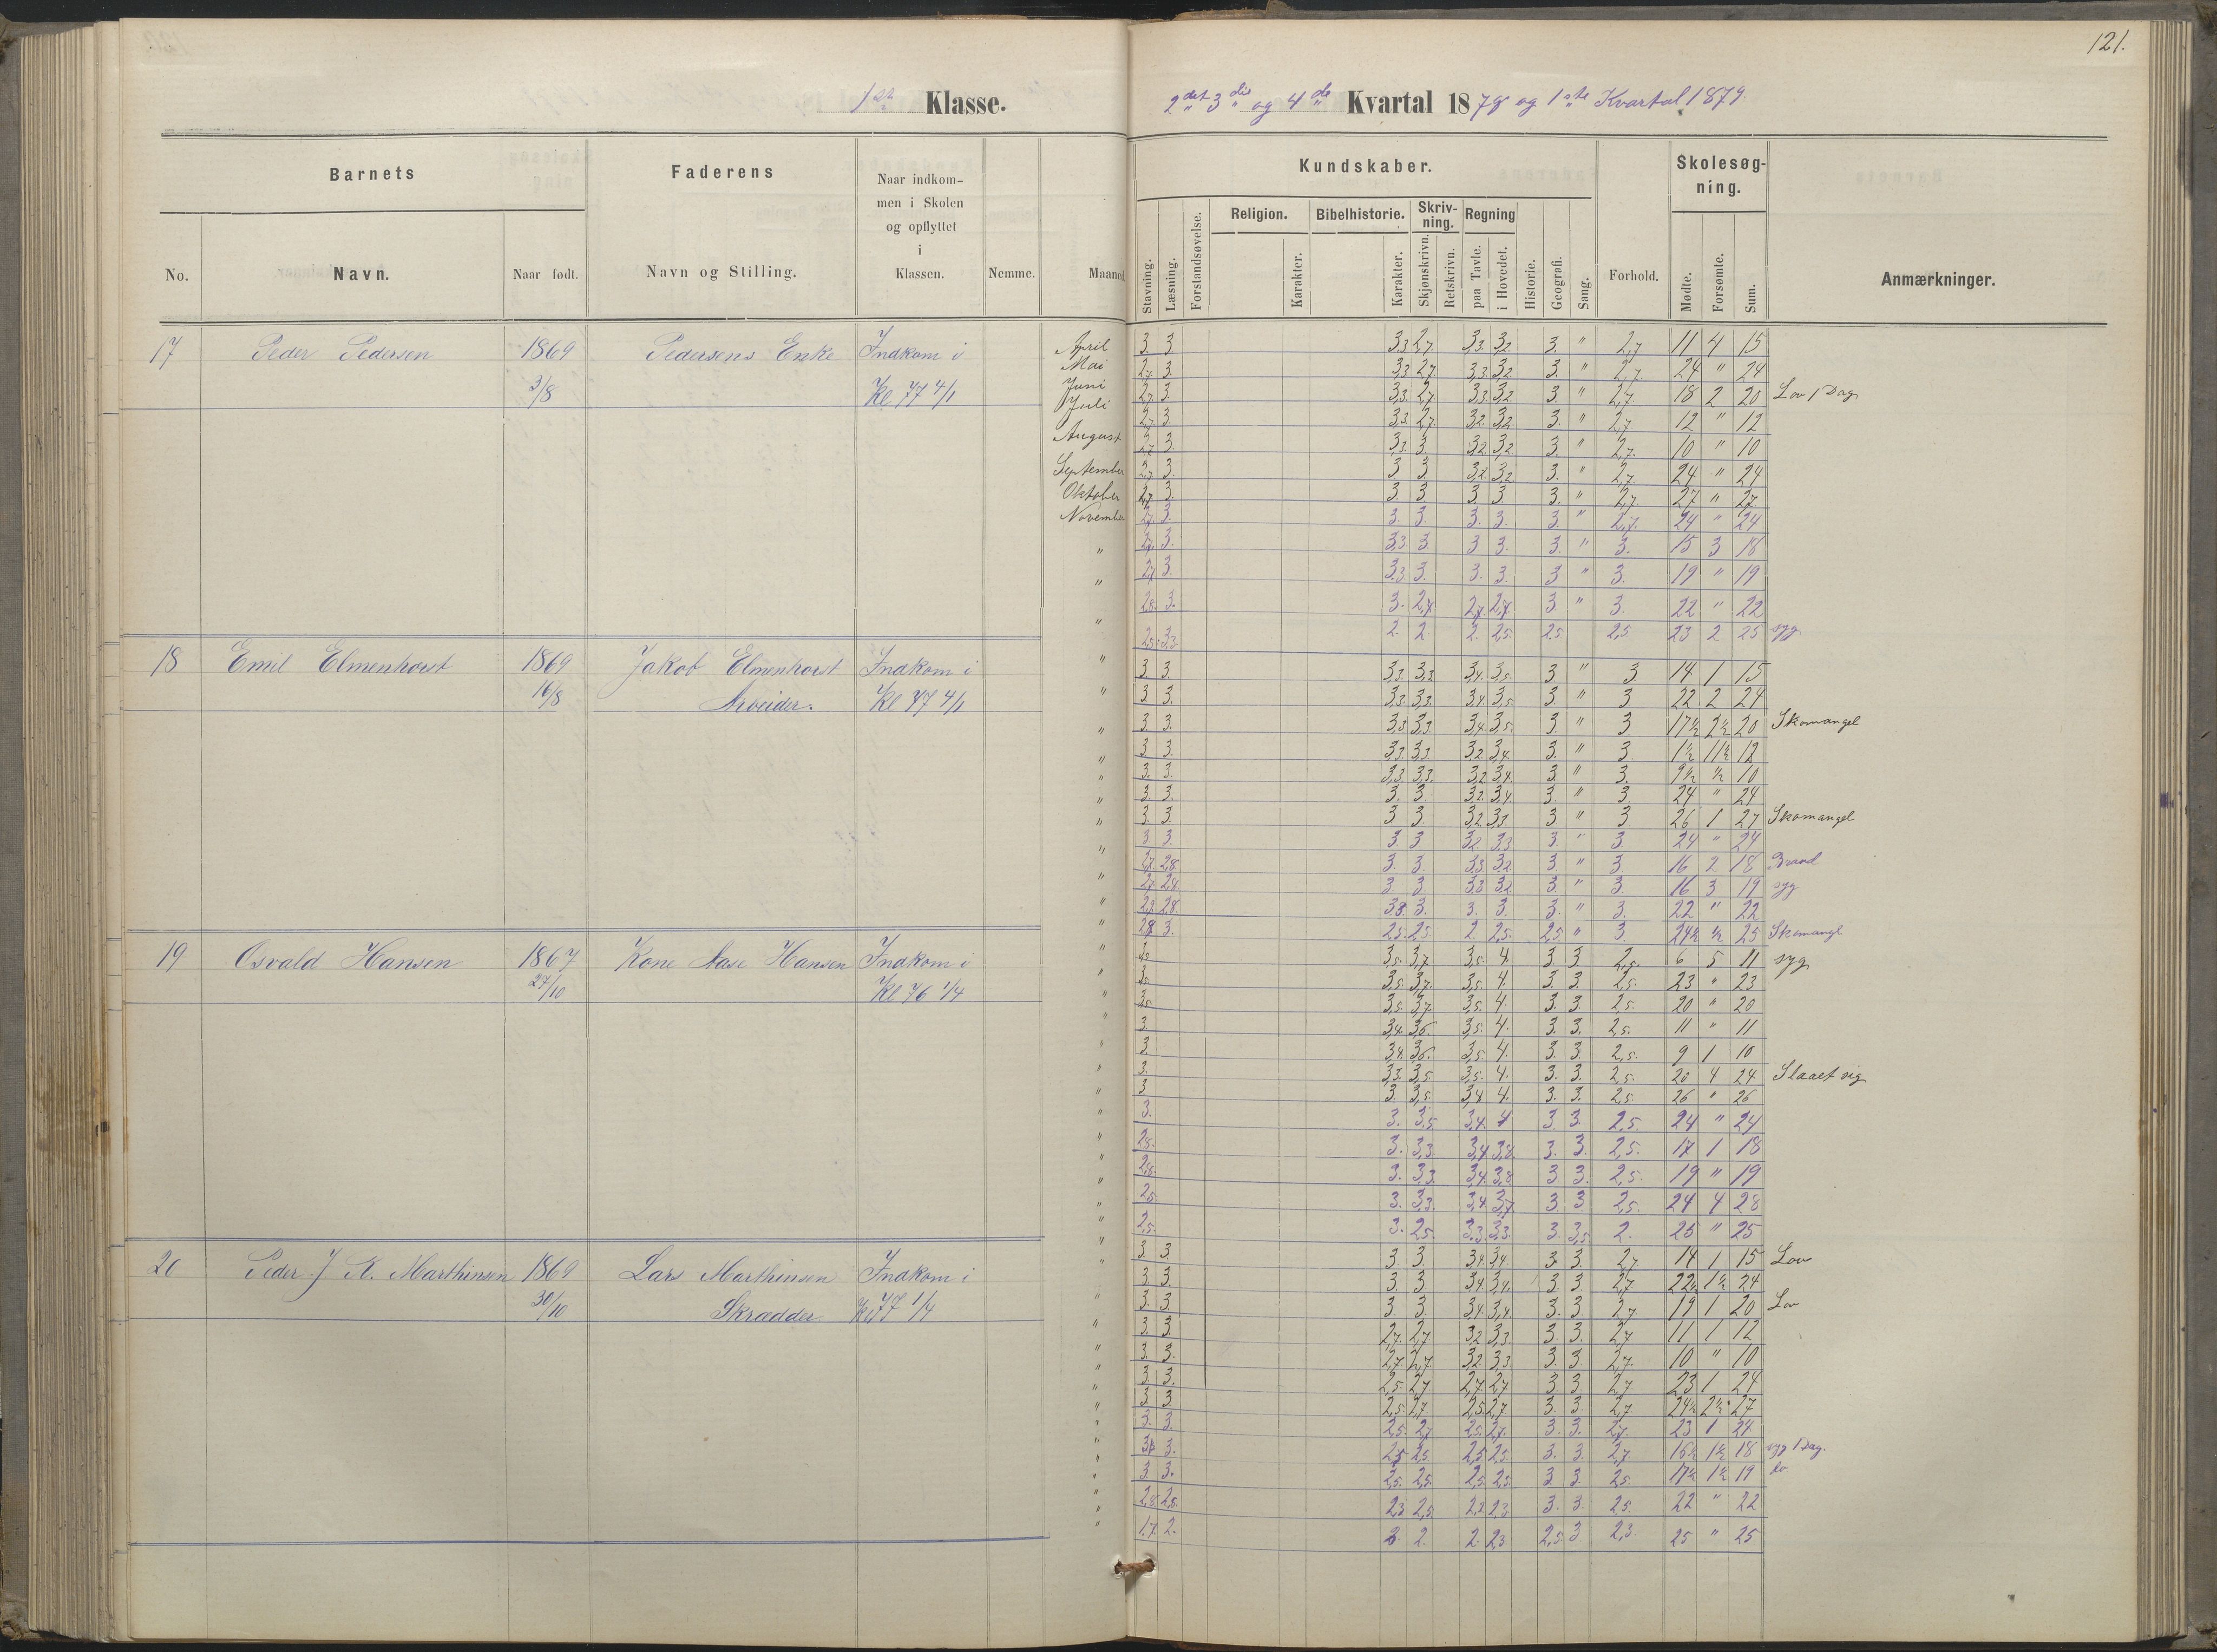 121.
1ste Klasse.
2det 3die og 4de Kvartal 1878 og 1ste Kvartal 1879.
Barnets
Faderens
Naar indkom-
men i Skolen
og opflyttet
i
Klassen.
No.
Navn.
Naar født.
Navn og Stilling.
Nemme.
Maaned
Kundskaber.
Skolesøg-
ning.
Religion.
Bibelhistorie.
Skriv-
ning.
Regning
Stavning.
Læsning.
Forstandsøvelse.
Karakter.
Karakter.
Skjønskrivn.
Retskrivn.
paa Tavle.
i Hovedet.
Historie.
Geografi.
Sang.
Forhold.
Mødte.
Forsømte.
Sum.
Anmærkninger.
17 Peder Pedersen 1869 Pedersens Enke Indkom i
3/8 Kl 77 4/1
April 3. 3 3,3 2,7 3,3. 3,2 3. " 2,7 11 4 15
Mai 2,7 3. 3,3 2,7 3,3. 3,2 3. " 2,7. 24 " 24
Juni 2,7 3. 3,3. 2,7 3,3. 3,2 3. " 2,7 18 2 20 Lov 1 Dag
Juli 2,7 3. 3,3. 2,7. 3,2. 3,2 3. " 2,7 12 " 12
August 2,7 3. 3,3. 3. 3,2. 3,2 3. " 2,7. 10 " 10
September 2,7 3. 3 3 3,2. 3,2 3. " 2,7. 24 " 24
Oktober 2,7 3. 3. 3. 3. 3 3. " 2,7 27 " 27
November 2,7. 3. 3. 3. 3. 3. 3. " 2,7. 24 " 24
" 2,7. 3. 3,3. 3. 3 3. 3. " 3. 15 3 18
" 2,7 3. 3,3. 3. 3. 3. 3 " 3. 19 " 19
" 2,8. 3. 3. 2,7 2,7. 2,7. 3 " 3. 22 " 22
2,5. 3,3. 2. 2 2. 2,5. 2,5. 2,5 23 2 25 syg
18 Emil Elmenhorst 1869 Jakob Elmenhorst Indkom i
16/8 Arbeider. Kl 77 4/1
" 3 3. 3,3. 3,3 3,4. 3,5. 3 " 3 14 1 15
" 3 3. 3,3. 3,3. 3,4. 3,5 3. " 3 22 2 24
" 3 3. 3,3 3,3. 3,4. 3,5. 3. " 3 17½ 2½ 20 Skomangel
" 3 3. 3,3. 3,3. 3,2. 3,4. 3. " 3. ½ 11½ 12
" 3. 3. 3,3. 3,3. 3,2 3,4. 3 " 3. 9½ ½ 10
" 3. 3. 3. 3. 3,2. 3,4. 3. " 3. 24 " 24
" 3. 3. 3 3. 3,2 3,3. 3 " 3. 26 1 27 Skomangel
" 3 3. 3. 3 3,2. 3,3 3. " 3. 24 " 24
" 2,7 2,8. 3 3 3,3. 3,2. 3 " 3. 16 2 18 Brand
" 2,7. 2,8. 3. 3. 3,3 3,2 3. " 3. 16 3 19 syg
" 2,7. 2,8. 3,3. 3. 3. 3. 3. " 3. 22 " 22
" 2,7 3. 2,5. 2,5. 2. 2,5. 2,5. " 3. 24½ ½ 25 Skomangl
19 Osvald Hansen 1867 Kone Aase Hansen Indkom i
27/10 Kl 76 1/4
" 3,5. 3,7 3,5. 4. 3. 3 2,5. 6 5 11 syg
" 3,5. 3,7. 3,5. 4. 3. 3. 2,5. 23 " 23
" 3,5. 3,7. 3,5. 4. 3. 3 2,5. 20 " 20
" 3. 3,4. 3,5. 3,5. 4. 3. 3. 2,5. 11 " 11
" 3. 3,4. 3,5. 3,5. 4. 3. 3. 2,5. 9 1 10
" 3. 3,3. 3,5. 3,5. 4. 3. 3. 2,5. 20 4 24 Slaaet sig
" 3 3. 3,5. 3,4 4. 3. 3. 2,5. 26 " 26
" 3. 3. 3,5 3,4. 4 3. 3. 2,5. 24 " 24
" 2,8. 3. 3,3. 3,4 3,8. 3. 3. 2,5. 17 1 18
" 2,8. 3. 3,3. 3,4. 3,8 3 3. 2,5. 19 " 19
" 2,5 3. 3,3. 3,4 3,7 3. 3 2,5. 24 4 28
" 2,5. 3. 2,5. 3,3. 3,3. 3. 3,5 2. 25 " 25
20 Peder J K. Marthinsen 1869 Lars Marthinsen Indkom i
30/10 Skrædder Kl 77 1/4
" 3. 3. 3 3. 3,4. 3,4 3. 3. 2,7 14 1 15 Lov
" 3. 3. 3 3 3,4. 3,4. 3. 3. 2,7 22½ 1½ 24
" 3. 3. 3 3. 3,4. 3,4. 3. 3. 2,7. 19 1 20 Lov
" 3. 3. 2,7. 2,7 3,2 3,3. 3. 3. 2,7 11 1 12
" 3. 3. 2,7. 2,7. 3,2. 3,3 3. 3 2,7. 10 " 10
" 3. 3. 2,5. 2,7. 2,7 2,7 3. 3 2,7. 23 1 24
" 3. 3. 2,5. 2,7 2,5. 2,7 3. 3. 2,7 24½ 2½ 27
" 3. 3. 2,5. 2,7 2,5. 2,7. 3. 3. 2,7. 23 1 24
" 3. 3. 2,5 2,5 2,5 2,5. 3. 3. 2,7. 16½ 1½ 18 syg 1 Dag.
" 3. 3. 2,5. 2,5. 2,5 2,5. 3 3. 2,5. 17½ 1½ 19 do
" 2,8. 2,5. 2,3 2,5 2,3 2,3. 3. 3. 2,5. 22 " 22
" 1,7. 2. 2. 2. 2. 2,3 2,5. 3 2,3. 25 " 25